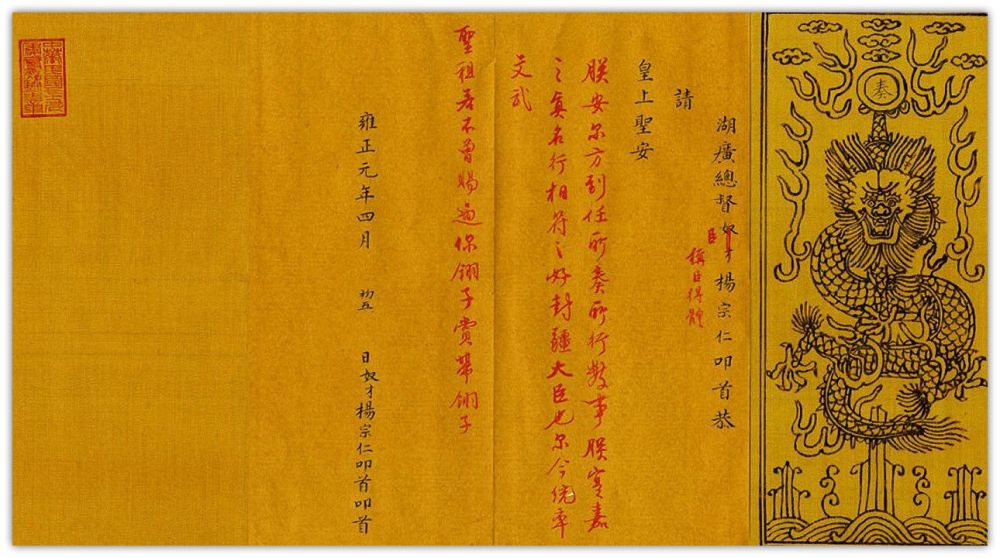 奏
湖廣總督奴才楊宗仁叩首恭
臣
稱臣得體
請
皇上聖安
朕安尔方到任所奏所行数事朕寔嘉
之真名行相符之好封疆大臣也尔今統率
文武
聖祖若不曾賜過你翎子賞帶翎子
雍正元年四月 初五 日奴才楊宗仁叩首叩首